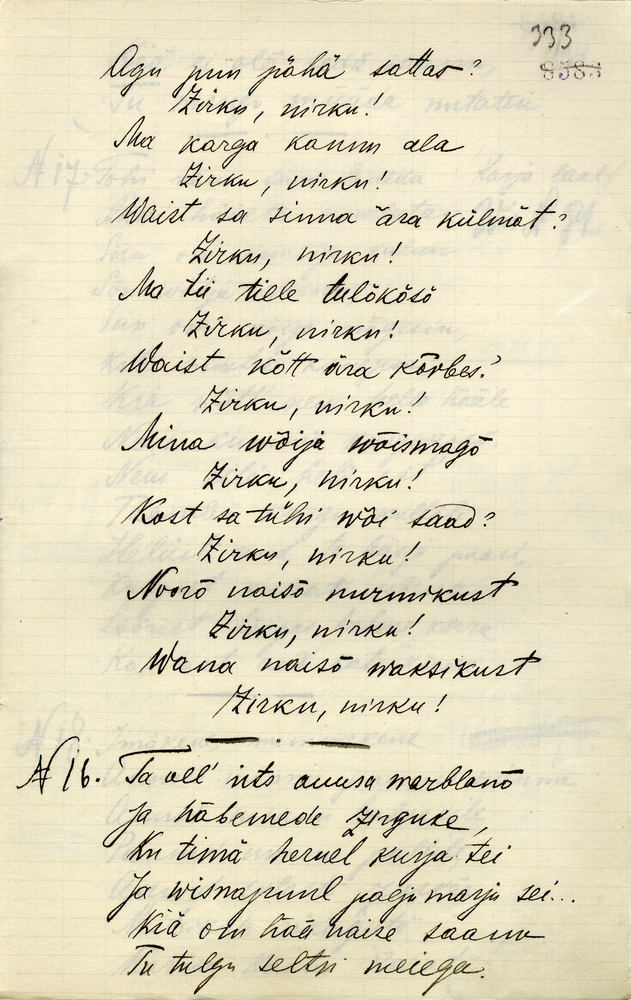 333
8583
Agu puu pähä sattas?
Zirku, nirku!
Ma karga kannu ala
Zirku, nirku!
Waist sa sinna ära külmät?
Zirku, nirku!
Ma tii tille tulõkõsõ
Zirku, nirku!
Waist kõtt ära kõrbes?
Zirku, nirku!
Mina wõija wõismagõ
Zirku, nirku!
Kost sa tühi wõi saad?
Zirku, nirku!
Noorõ naisõ nurmikust
Zirku, nirku!
Wana naisõ waksikust
Zirku, nirku!
N 16. Ta oll' üts auusa warblanõ
Ja häbemede zirguke,
Ku timä hernel kurja tei
Ja wisnapuul palju marju sei...
Kiä om hää naise saanu
Tu tulgu seltsi meiega.